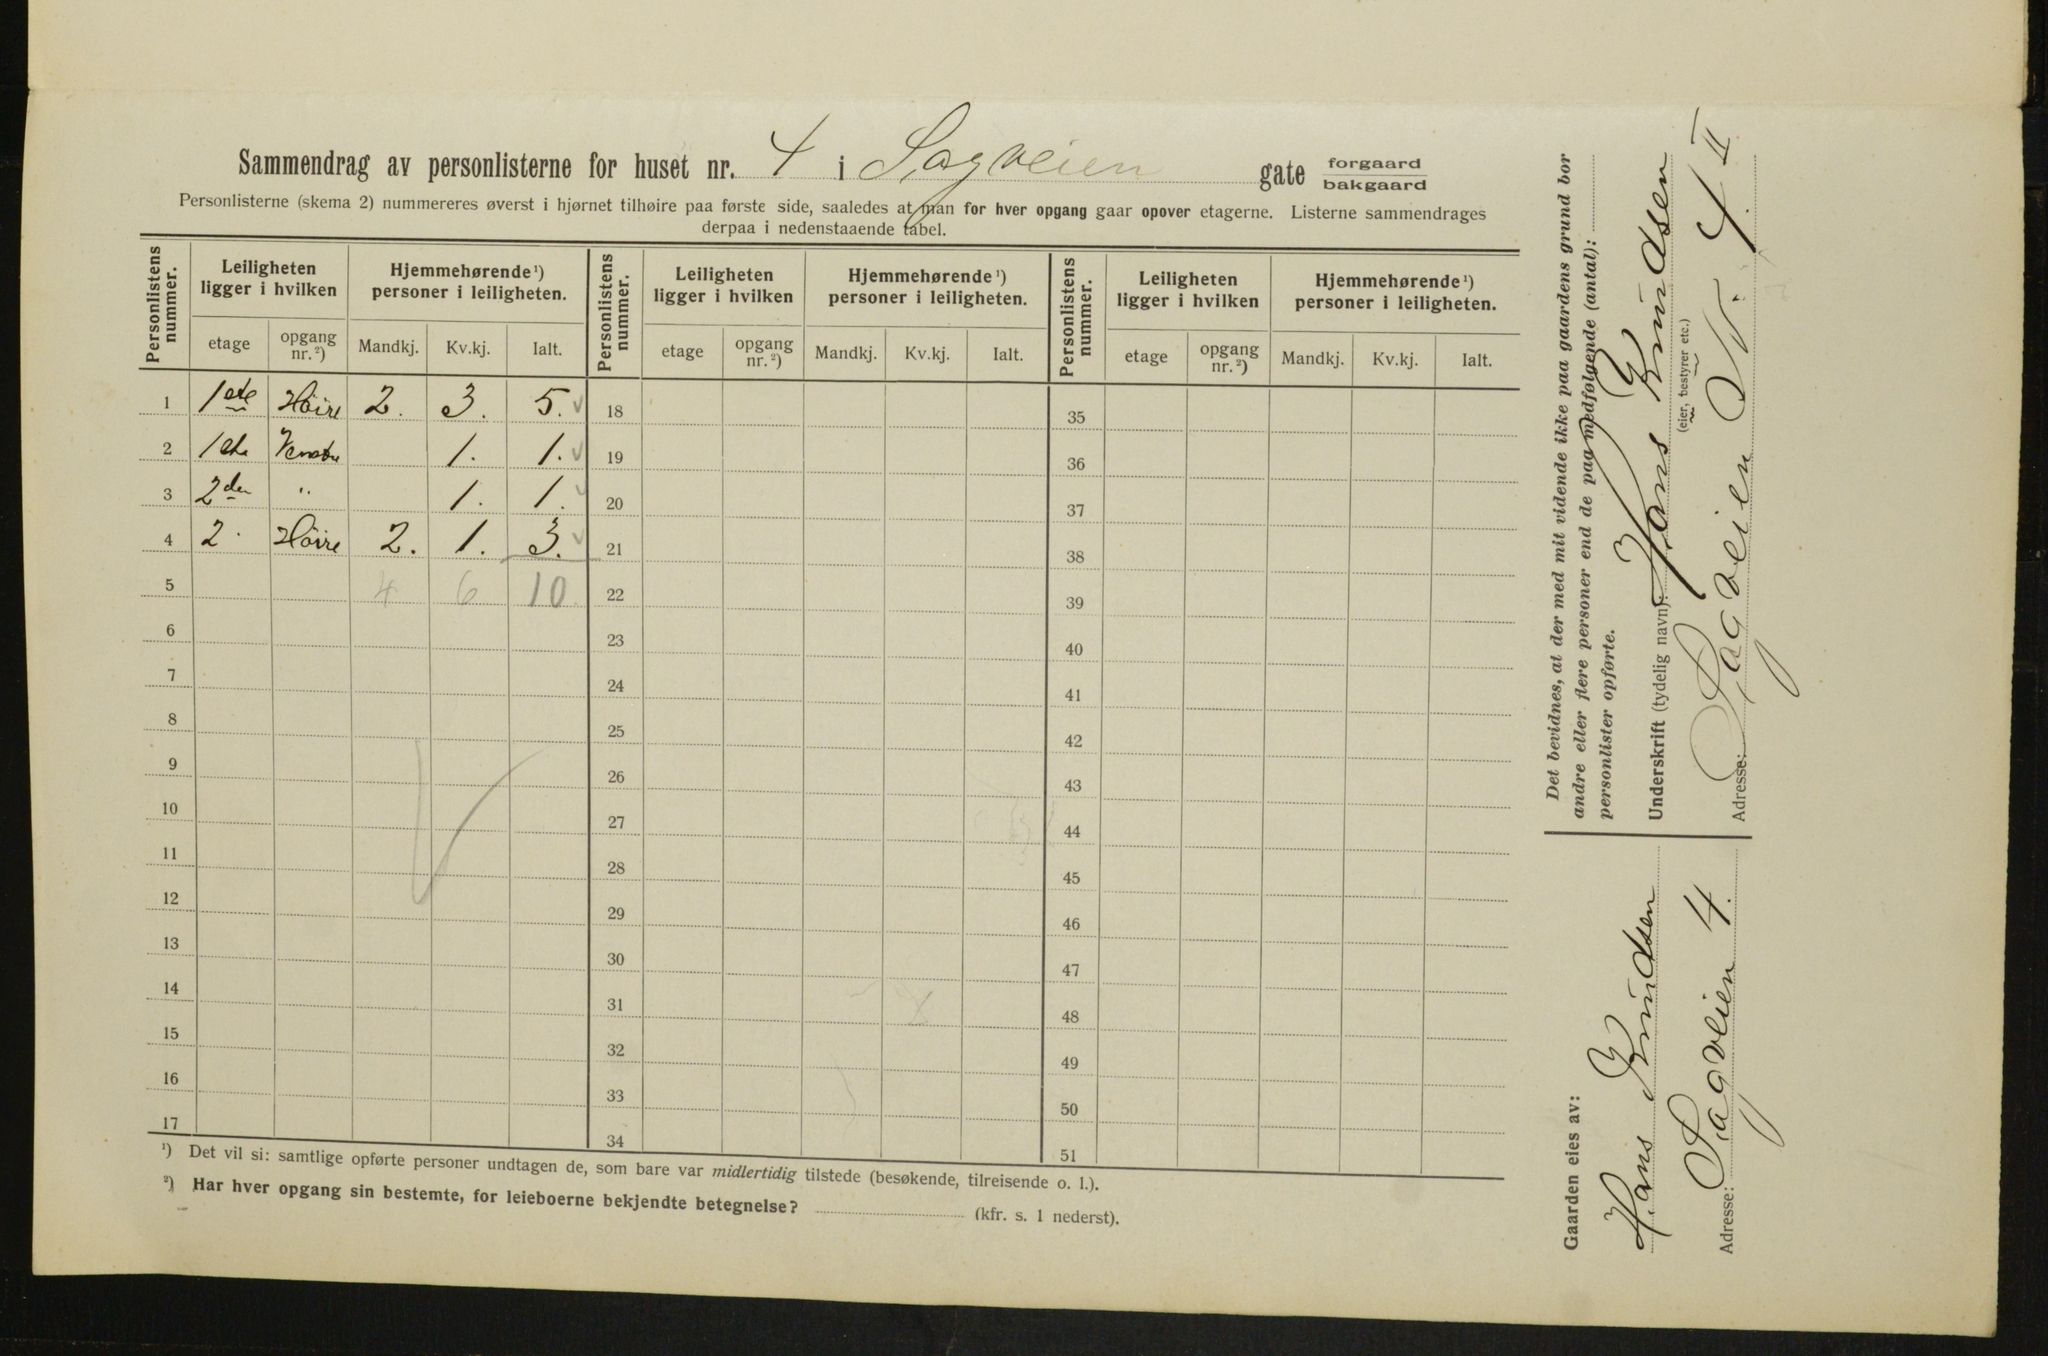 Sammendrag av personlisterne for huset nr. 4 i Sagveien gate forgaard
bakgaard
Personlisterne (skema 2) nummereres øverst i hjørnet tilhøire paa første side, saaledes at man for hver opgang gaar opover etagerne. Listerne sammendrages
derpaa i nedenstaaende tabel.
Personlistens nummer. Leiligheten ligger i hvilken Hjemmehørende ¹) personer i leiligheten. Personlistens nummer. Leiligheten ligger i hvilken Hjemmehørende ¹) personer i leiligheten. Personlistens nummer. Leiligheten ligger i hvilken Hjemmehørende ¹) personer i leiligheten.
etage opgang nr. ²) Mandkj. Kv.kj. Ialt. etage opgang nr. ²) Mandkj. Kv.kj. Ialt. etage opgang nr. ²) Mandkj. Kv.kj. Ialt.
1 1ste Höire 2. 3. 5. 18 35
2 1ste Venstre 1. 1. 19 36
3 2den " 1. 1. 20 37
4 2. Höire 2. 1. 3. 21 38
5 4 6 10 22 39
6 23 40
7 24 41
8 25 42
9 26 43
10 27 44
11 28 45
12 29 46
13 30 47
14 31 48
15 32 49
16 33 50
17 34 51
¹) Det vil si: samtlige opførte personer undtagen de, som bare var midlertidig tilstede (besøkende, tilreisende o. l.).
²) Har hver opgang sin bestemte, for leieboerne bekjendte betegnelse? (kfr. s. 1 nederst).
Det bevidnes, at der med mit vidende ikke paa gaardens grund bor
andre eller flere personer end de paa medfølgende (antal):
personlister opførte.
Underskrift (tydelig navn): Hans Knudsen
(eier, bestyrer etc.)
Adresse: Sagveien Nr. 4 II
Gaarden eies av:
Hans Knudsen
Adresse: Sagveien 4.